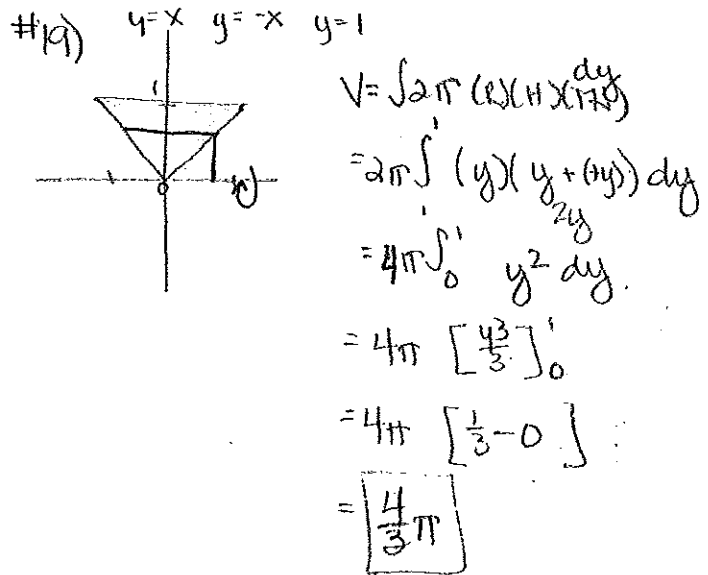 #19) y=x y=-x y=1
1
0
V= ∫2π (R)(H)( dy
=2π∫¹ (y)(y+(+y)) dy
2y
=4π∫₀¹ y² dy.
=4π [y³/3]₀¹
=4π [1/3-0]
= 4/3 π